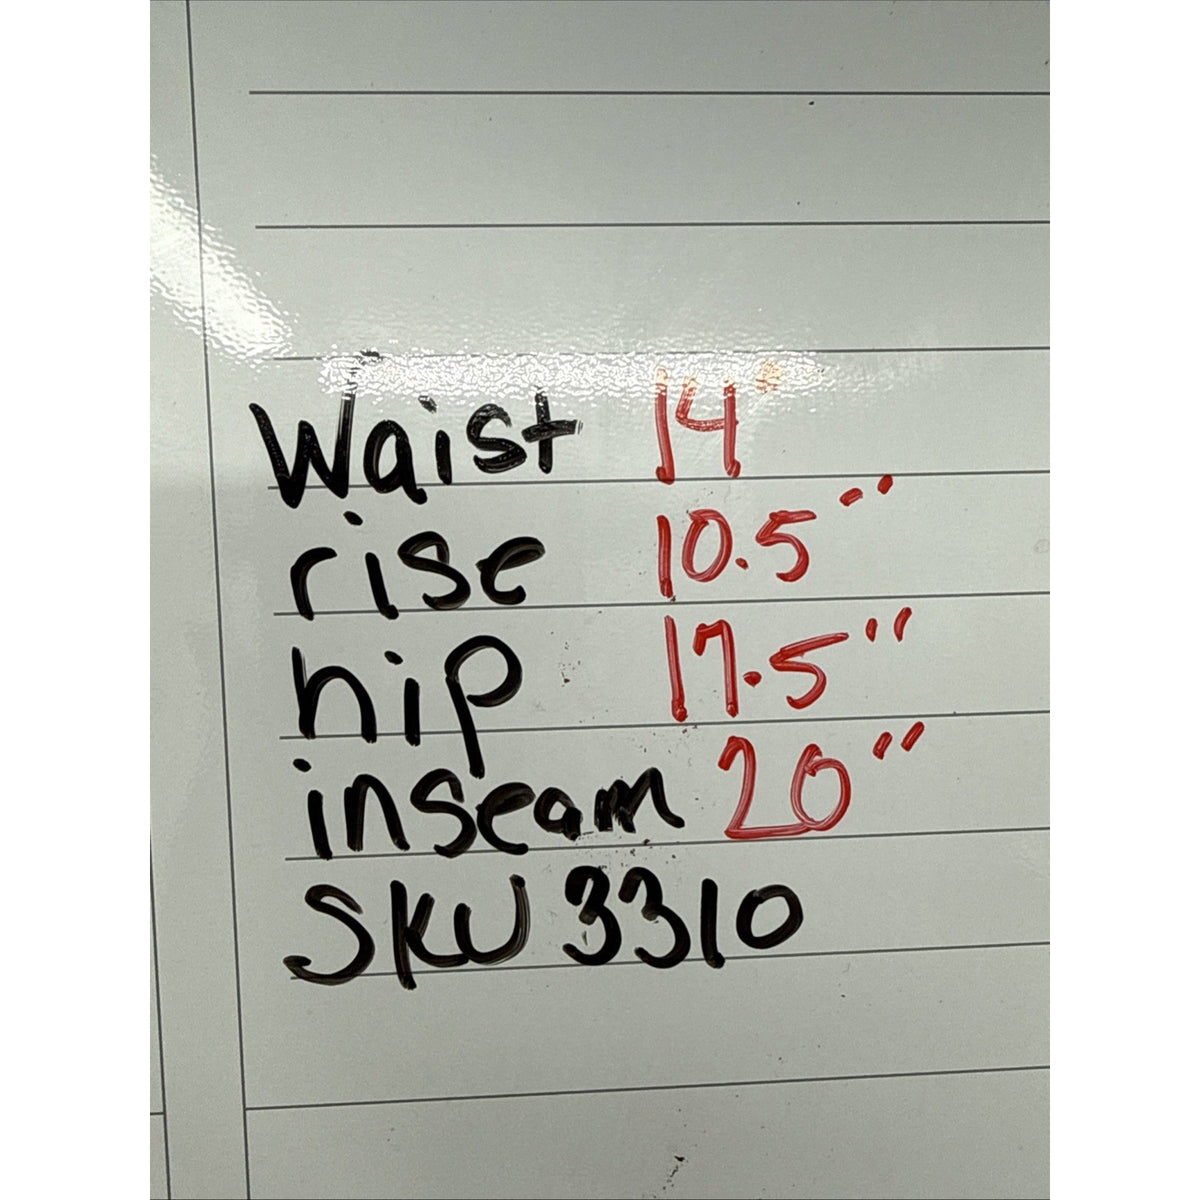 Waist 14"
rise 10.5"
hip 17.5"
inseam 20"
SKU 3310